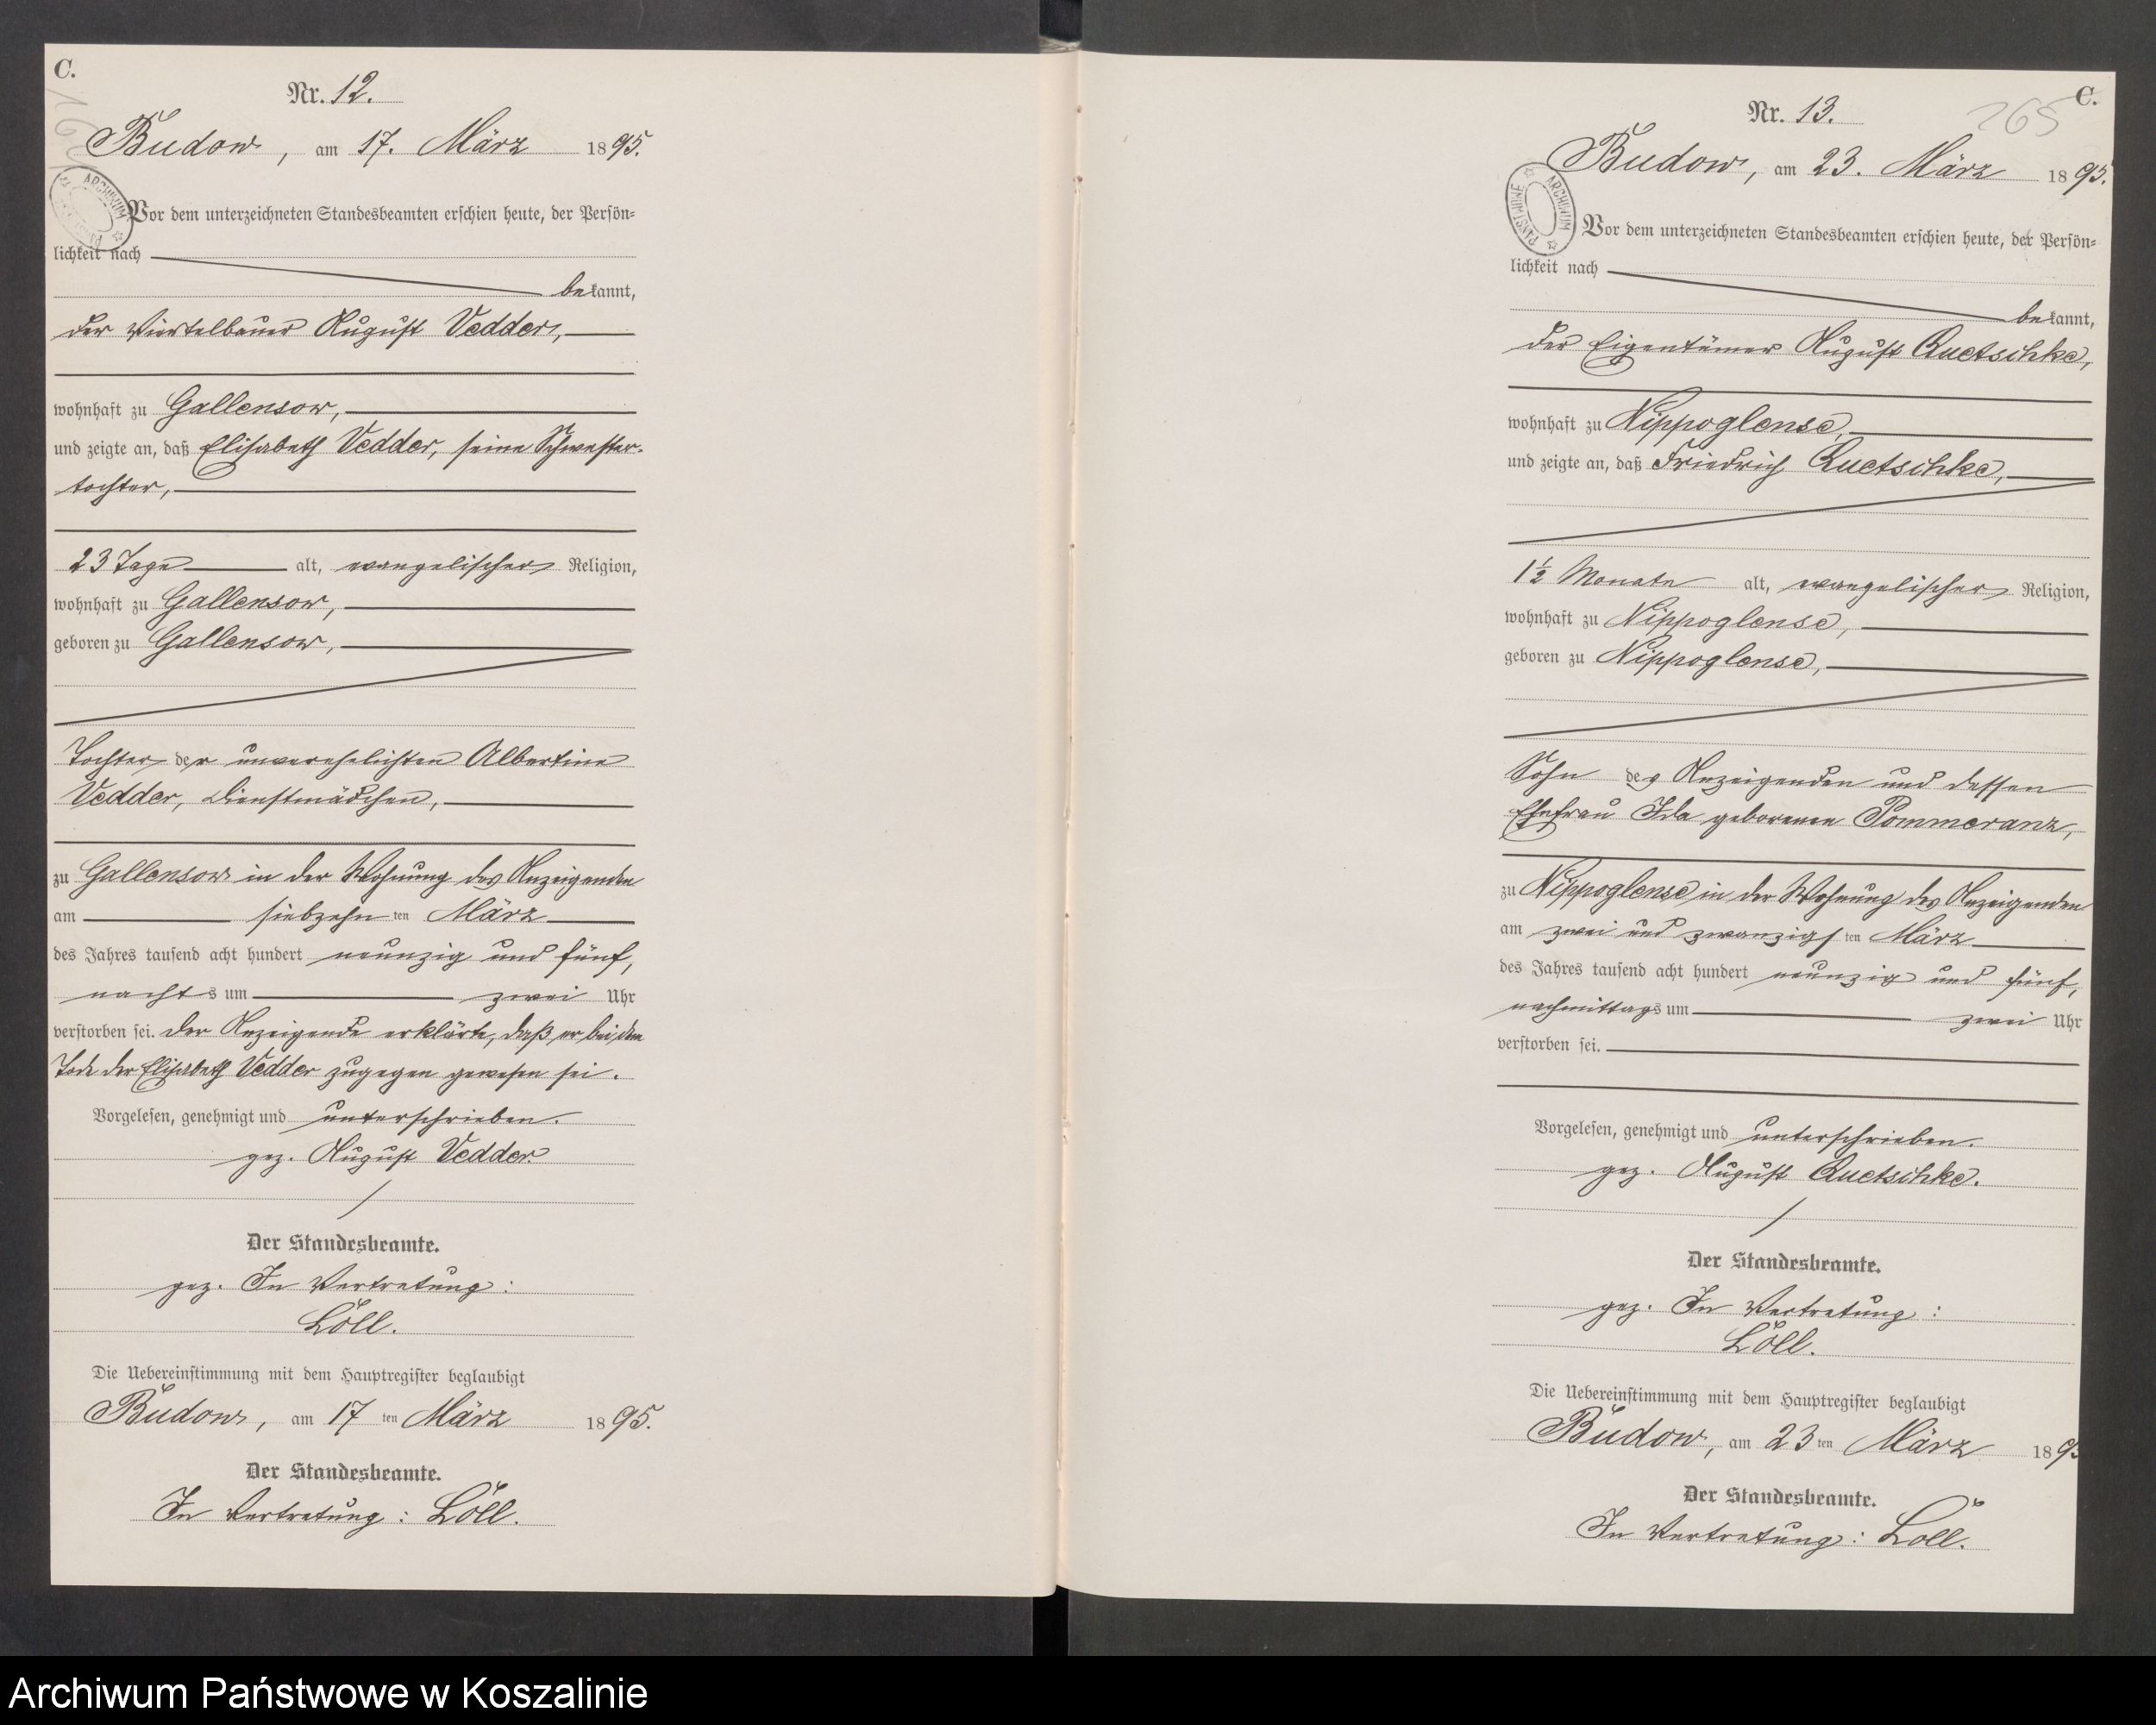 C.
Nr. 12.
Budow, am 17. März 1895.
Vor dem unterzeichneten Standesbeamten erschien heute, der Persön-
lichkeit nach
bekannt,
der Viertelbauer August Vedder,
wohnhaft zu Gallensow,
und zeigte an, daß Elisabeth Vedder, seine Schwester-
tochter,
23 Tage alt, evangelischer Religion,
wohnhaft zu Gallensow,
geboren zu Gallensow,
Tochter der unverehelichten Albertine
Vedder, Dienstmädchen,
zu Gallensow in der Wohnung des Anzeigenden
am siebzehnten März
des Jahres tausend acht hundert neunzig und fünf,
nachts um zwei Uhr
verstorben sei. Der Anzeigende erklärte, daß er bei dem
Tode der Elisabeth Vedder zugegen gewesen sei.
Vorgelesen, genehmigt und unterschrieben.
gez. August Vedder.
Der Standesbeamte.
gez. In Vertretung:
Löll.
Die Uebereinstimmung mit dem Hauptregister beglaubigt
Budow, am 17ten März 1895.
Der Standesbeamte.
In Vertretung: Löll.
ARCHIWUM
C.
265
Nr. 13.
Budow, am 23. März 1895.
ARCHIWUM PAŃSTWOWE
Vor dem unterzeichneten Standesbeamten erschien heute, der Persön-
lichkeit nach
bekannt,
der Eigentümer August Quetschke,
wohnhaft zu Nippoglense,
und zeigte an, daß Friedrich Quetschke,
1½ Monate alt, evangelischer Religion,
wohnhaft zu Nippoglense,
geboren zu Nippoglense,
Sohn des Anzeigenden und dessen
Ehefrau Ida geborenen Pommeranz,
zu Nippoglense in der Wohnung des Anzeigenden
am zwei und zwanzigsten März
des Jahres tausend acht hundert neunzig und fünf,
nachmittags um zwei Uhr
verstorben sei.
Vorgelesen, genehmigt und unterschrieben.
gez. August Quetschke.
Der Standesbeamte.
gez. In Vertretung:
Löll.
Die Uebereinstimmung mit dem Hauptregister beglaubigt
Budow, am 23ten März 189
Der Standesbeamte.
In Vertretung: Löll.
Archiwum Państwowe w Koszalinie